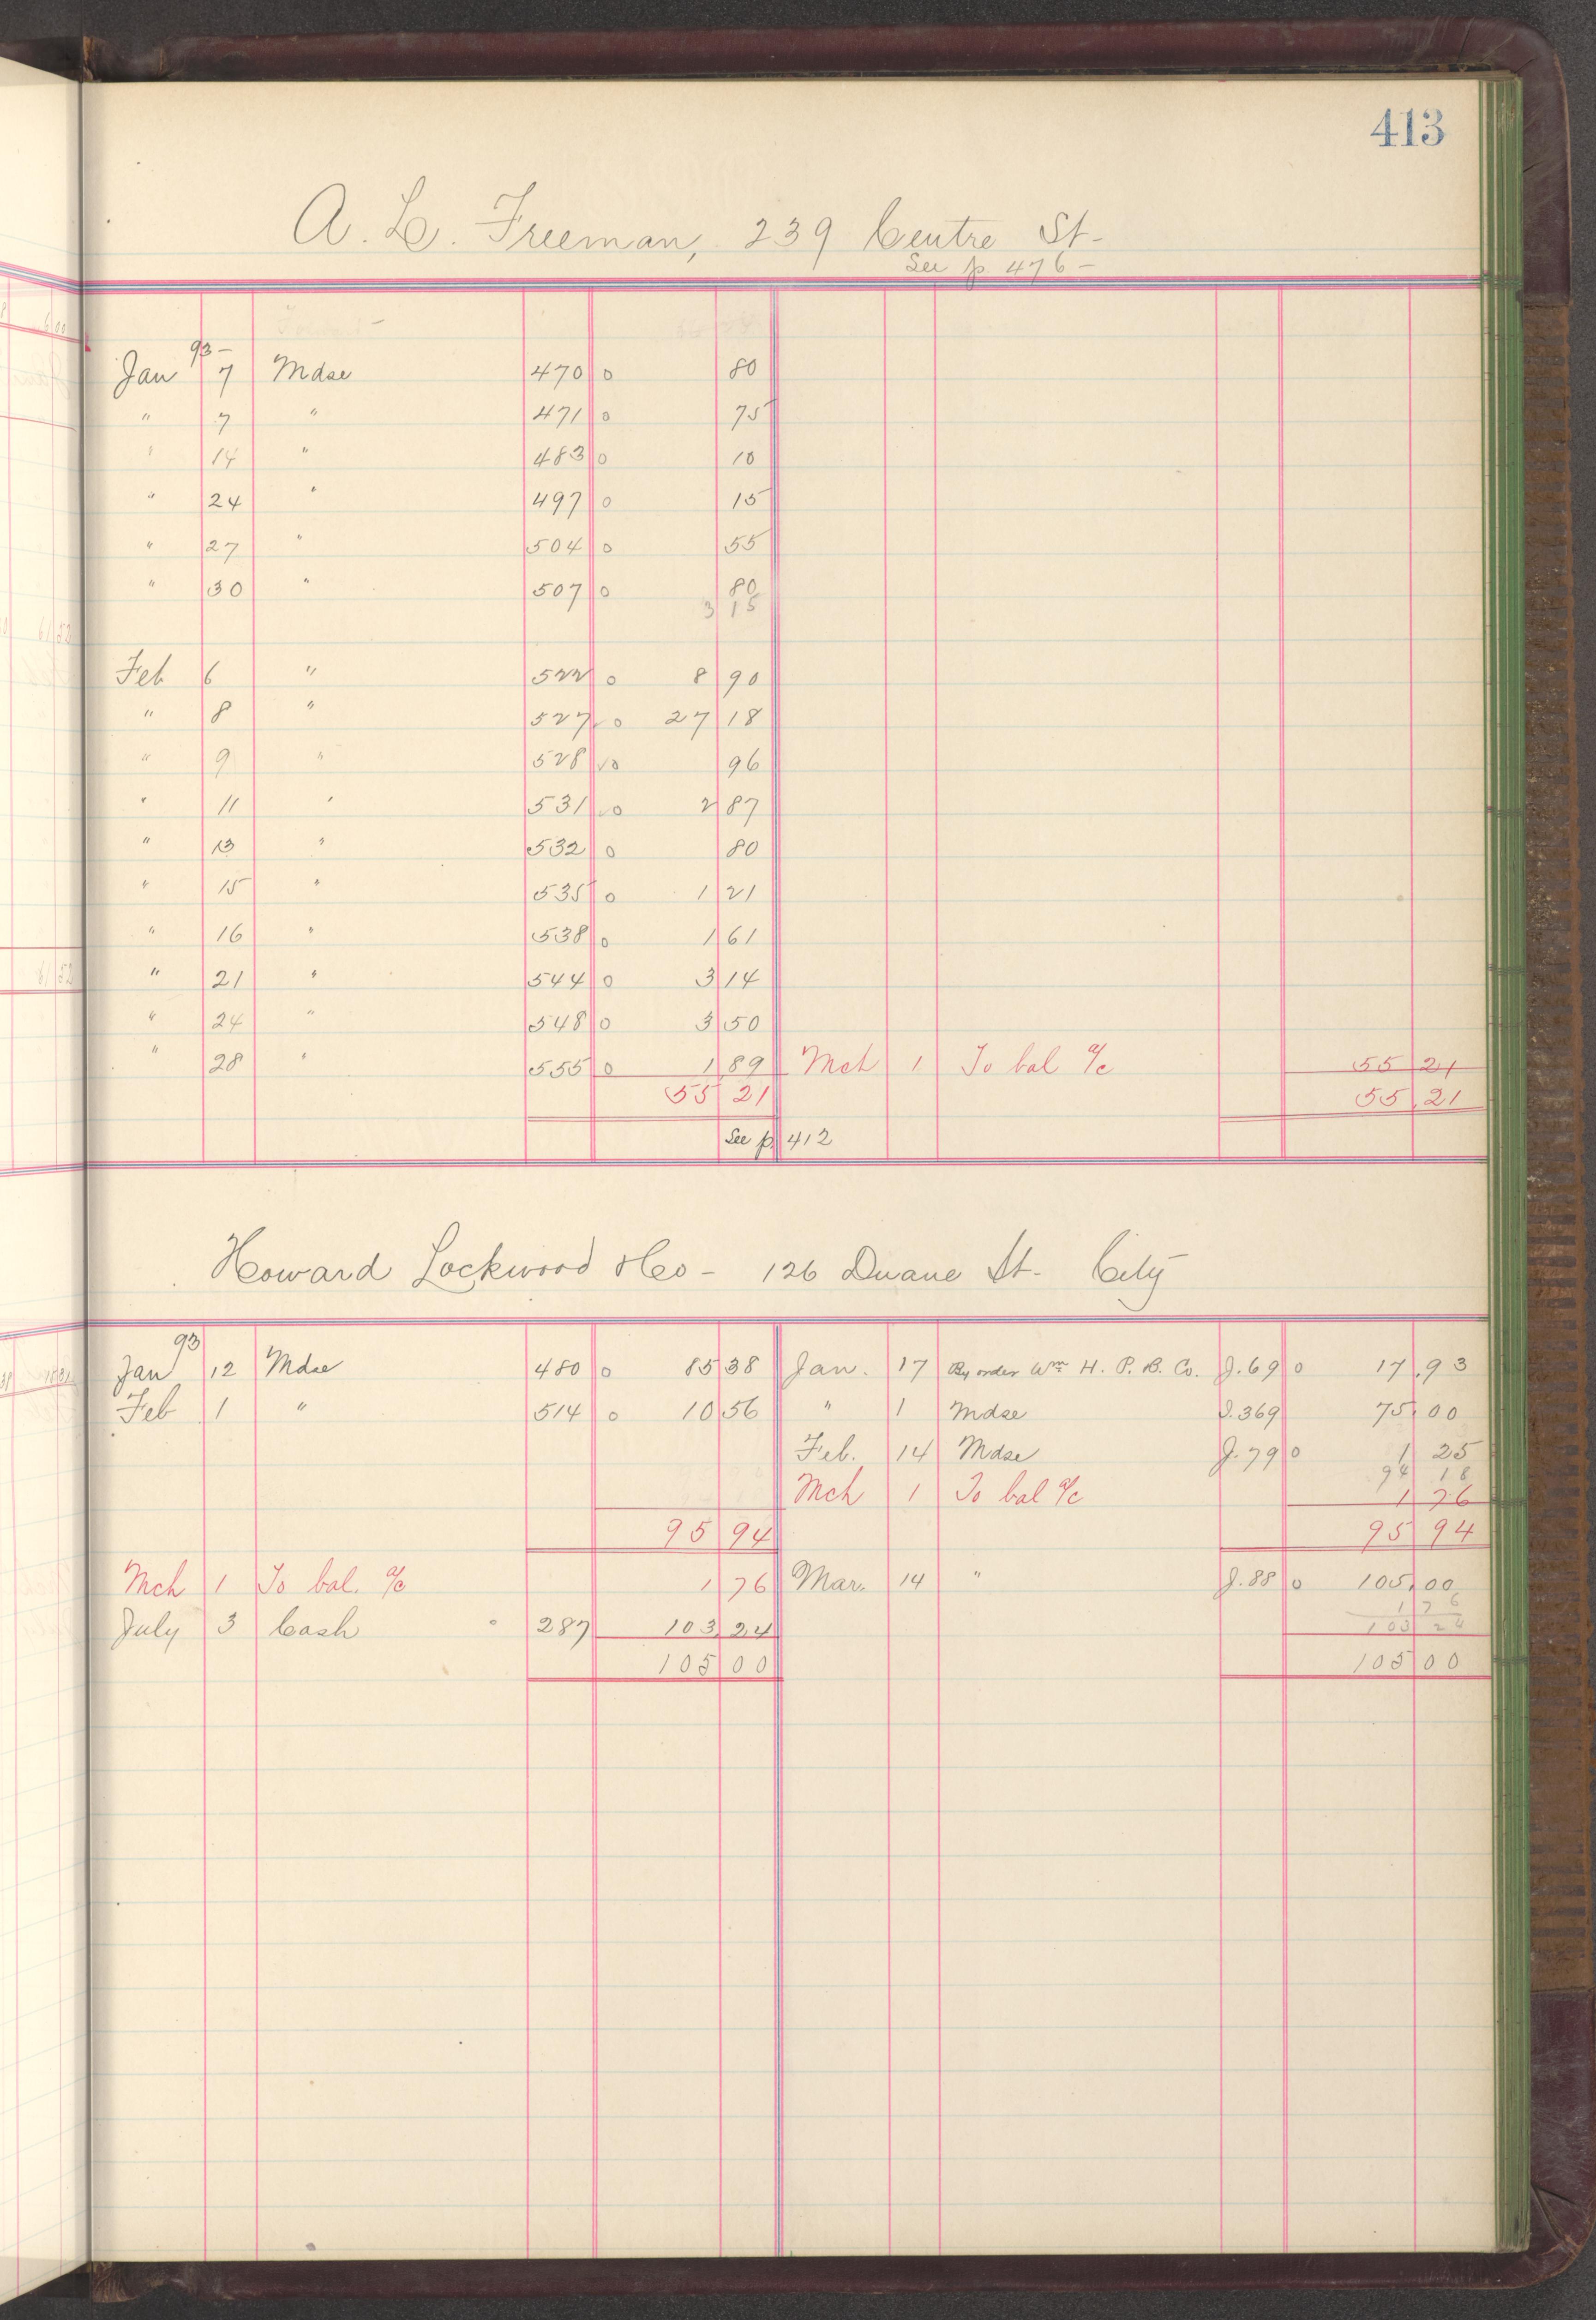 413
A. L. Freeman, 239 Centre St-
See p. 476-
93-
Jan 7 Mdse 470 0 80
" 7 " 471 0 75
" 14 " 483 0 10
" 24 " 497 0 15
" 27 " 504 0 55
" 30 " 507 0 80
3 15
Feb 6 " 522 0 8 90
" 8 " 527 0 27 18
" 9 " 528 0 96
" 11 " 531 0 2 87
" 13 " 532 0 80
" 15 " 535 0 1 21
" 16 " 538 0 1 61
" 21 " 544 0 3 14
" 24 " 548 0 3 50
" 28 " 555 0 1 89 Mch 1 To bal a/c 55 21
55 21 55 21
See p. 412
Howard Lockwood & Co - 126 Duane St- City
93
Jan 12 Mdse 480 0 85 38 Jan. 17 By order Wm H. P. B. Co. J.69 0 17.93
Feb 1 " 514 0 10 56 " 1 Mdse J.369 75.00
Feb. 14 Mdse J.79 0 1 25
94 18
Mch 1 To bal a/c 1 76
95 94 95 94
Mch 1 To bal. a/c 1 76 Mar. 14 " J.88 0 105.00
1 76
July 3 Cash 287 103 24 103 24
105 00 105 00